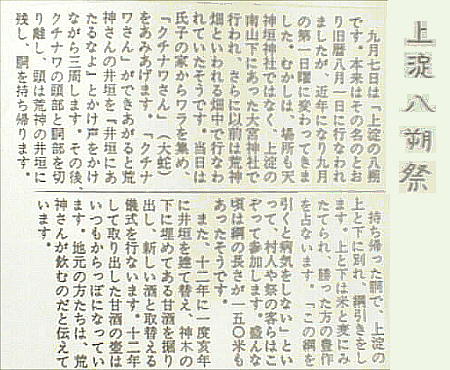 上淀八朔祭
九月七日は「上淀の八朔
です。本来はその名のとお
り旧暦八月一日に行なわれ
ましたが、近年になり九月
の第一日曜に変わってきま
した。むかしは、場所も天
神垣神社ではなく、上淀の
南山下にあった大宮神社で
行われ、さらに以前は荒神
畑といわれる畑中で行なわ
れていたそうです。当日は
氏子の家からワラを集め、
「クチナワさん」（大蛇）
をあみあげます。「クチナ
ワさん」ができあがると荒
神さんの井垣を『井垣にあ
たるなよ』とかけ声をかけ
ながら三周します。その後、
クチナワの頭部と胴部を切
り離し、頭は荒神の井垣に
残し、胴を持ち帰ります。
持ち帰った胴で、上淀の
上と下に別れ、綱引きをし
ます。上と下は米と麦にみ
たてられ、勝った方の豊作
を占います。「この綱を
引くと病気をしない」とい
って、村人や祭の客らはこ
ぞって参加します。盛んな
頃は綱の長さが一五〇米も
あったそうです。
また、十二年に一度亥年
に井垣を建て替え、神木の
下に埋めてある甘酒を掘り
出し、新しい酒と取替える
儀式を行ないます。十二年
して取り出した甘酒の壺は
いつもからっぽになってい
ます。地元の方たちは、荒
神さんが飲むのだと伝えて
います。